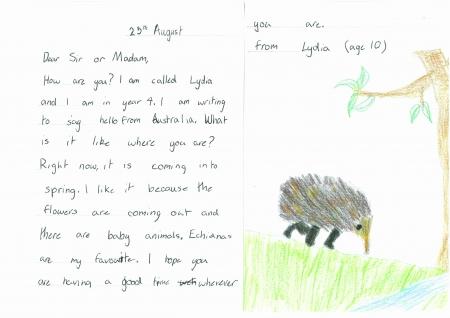 25th August
Dear Sir or Madam,
How are you? I am called Lydia
and I am in year 4. I am writing
to say hello from Australia. What
is it like where you are?
Right now, it is coming into
spring. I like it because the
flowers are coming out and
there are baby animals. Echidnas
are my favourite. I hope you
are having a good time wherever
you are.
from Lydia (age 10)